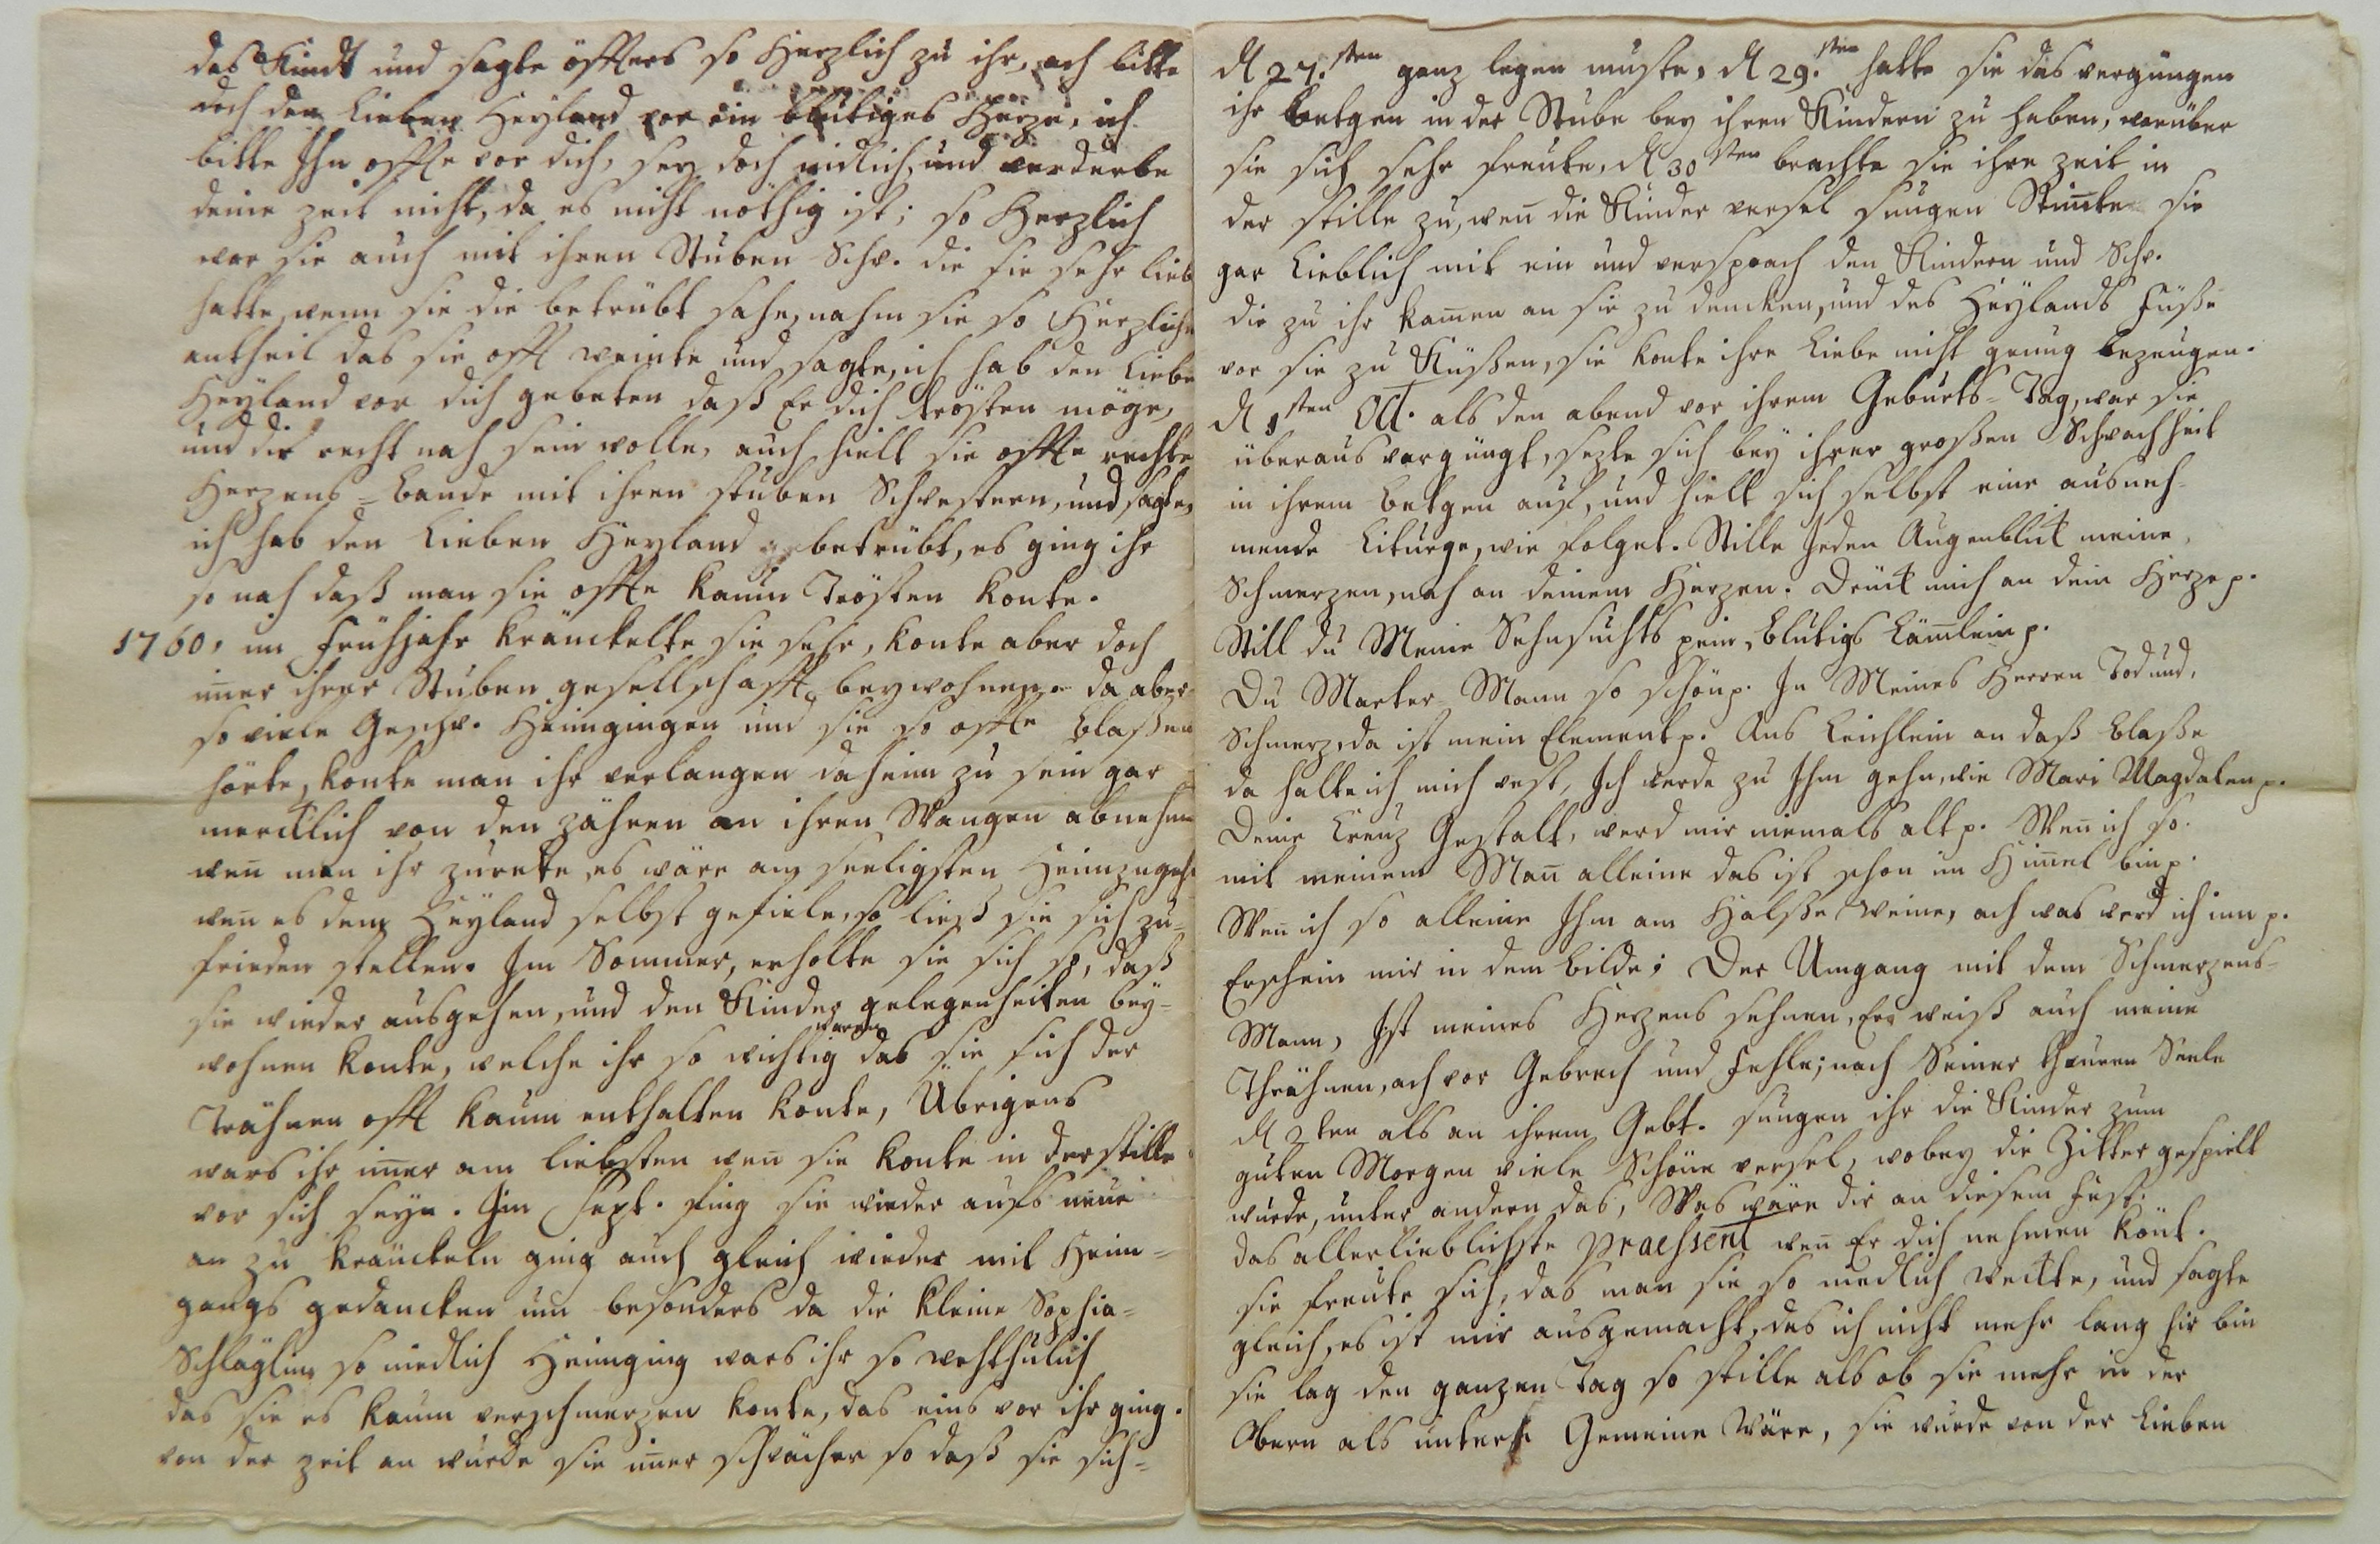 das Kindt und sagte öffters so Herzlich zu ihr, ach bitte
doch den Lieben Heyland vor ein blutiges Herze, ich
bitte Ihn offte vor dich, sey doch nidlich, und verderbe
deine zeit nicht, da es nicht nöthig ist; so Herzlich
war sie auch mit ihren Stuben Schw. die sie sehr lieb
hatte, wenn sie die betrübt sahe, nahm sie so Herzlich
antheil das sie offt weinte und sagte, ich hab den Liebe
Heyland vor dich gebeten daß Er dich trösten möge,
und dir recht nah sein wolle, auch hielt sie offte rechte
Herzens-bande mit ihren stuben Schwestern, und sagte,
ich hab den Lieben Heyland betrübt, es ging ihr
so nah daß man sie offte kaum Trösten konte.
1760, im Frühjahr kränckelte sie sehr, konte aber doch
im̅er ihrer Stuben gesellschafft beywohnen. da aber
so viele Geschw. Heimgingen und sie so offte blaßen
hörte, konte man ihr verlangen daheim zu sein gar
mercklich von den zähren an ihren Wangen abnehm
wen̅ man ihr zurette, es wäre am seeligsten Heimzugeh
wen̅ es dem Heyland selbst gefiele, so ließ sie sich zu-
frieden stellen. Im Sommer, erholte sie sich so, daß
sie wieder ausgehen, und den Kinder gelegenheiten bey-
wohnen konte, welche ihr so wichtig waren das sie sich der
Trähnen offt kaum enthalten konte, Übrigens
wars ihr im̅er am liebsten wen̅ sie konte in der stille
vor sich seyn. Im Sept. fing sie wieder aufs neue
an zu kränckeln ging auch gleich wieder mit Heim-
gangs gedancken um besonders da die kleine Sophia-
Schläglin so niedlich Heimging wars ihr so wehthulich
das sie es kaum verschmerzen konte, das eins vor ihr ging.
von der zeit an wurde sie im̅er schwächer so daß sie sich-
d 27.sten ganz legen muste, d 29.sten hatte sie das vergnügen
ihr betgen in der Stube bey ihren Kindern zu haben, worüber
sie sich sehr freute, d 30sten brachte sie ihre zeit in
der stille zu, wen̅ die Kinder versel sungen Stim̅te sie
gar Lieblich mit ein und versprach den Kindern und Schw.
die zu ihr kam̅en an sie zu dencken, und des Heylands Füße
vor sie zu Küßen, sie konte ihre Liebe nicht genug bezeugen.
d 1sten Oct. als den abend vor ihrem Geburts-Tag, war sie
überaus vergnügt, sezte sich bey ihrer großen Schwachheit
in ihrem betgen auf, und hielt sich selbst eine ausneh-
mende Liturge, wie folget. Stille Jeden Augenblick meine
Schmerzen, nah an deinem Herzen. Drück mich an dein Herze p.
Still du Meine Sehnsuchts pein, blutigs Läm̅lein p.
Du Marter-Mann so schön p. In Meines Herren Tod und,
Schmerz, da ist mein Element p. Ans Leichlein an daß blaße
da halte ich mich vest, Ich werde zu Ihm gehn, wie Mari Magdalen p.
Deine Creuz Gestalt, werd mir niemals alt p. Wen̅ ich so
mit meinem Man̅ alleine das ist schon im Him̅el bin p.
Wen̅ ich so alleine Ihm am Halße weine, ach was werd ich inn p.
Erschein mir in dem bilde; Der Umgang mit dem Schmerzens-
Mann, Ist meines Herzens sehnen, Er weiß auch meine
Thrähnen, ach vor Gebrech und Fehle; nach Seiner theuren Seele
d 2ten als an ihrem Gebt. sungen ihr die Kinder zum
guten Morgen viele Schöne versel, wobey die Zitter gespielt
wurde, unter andern das, Was wäre dir an diesem Fest.
das allerlieblichste praesent wen̅ Er dich nehmen könt.
sie freute sich, das man sie so niedlich weckte, und sagte
gleich, es ist mir ausgemacht, das ich nicht mehr lang hir bin
sie lag den ganzen Tag so stille als ob sie mehr in der
Obern als untern Gemeine wäre, sie wurde von der Lieben